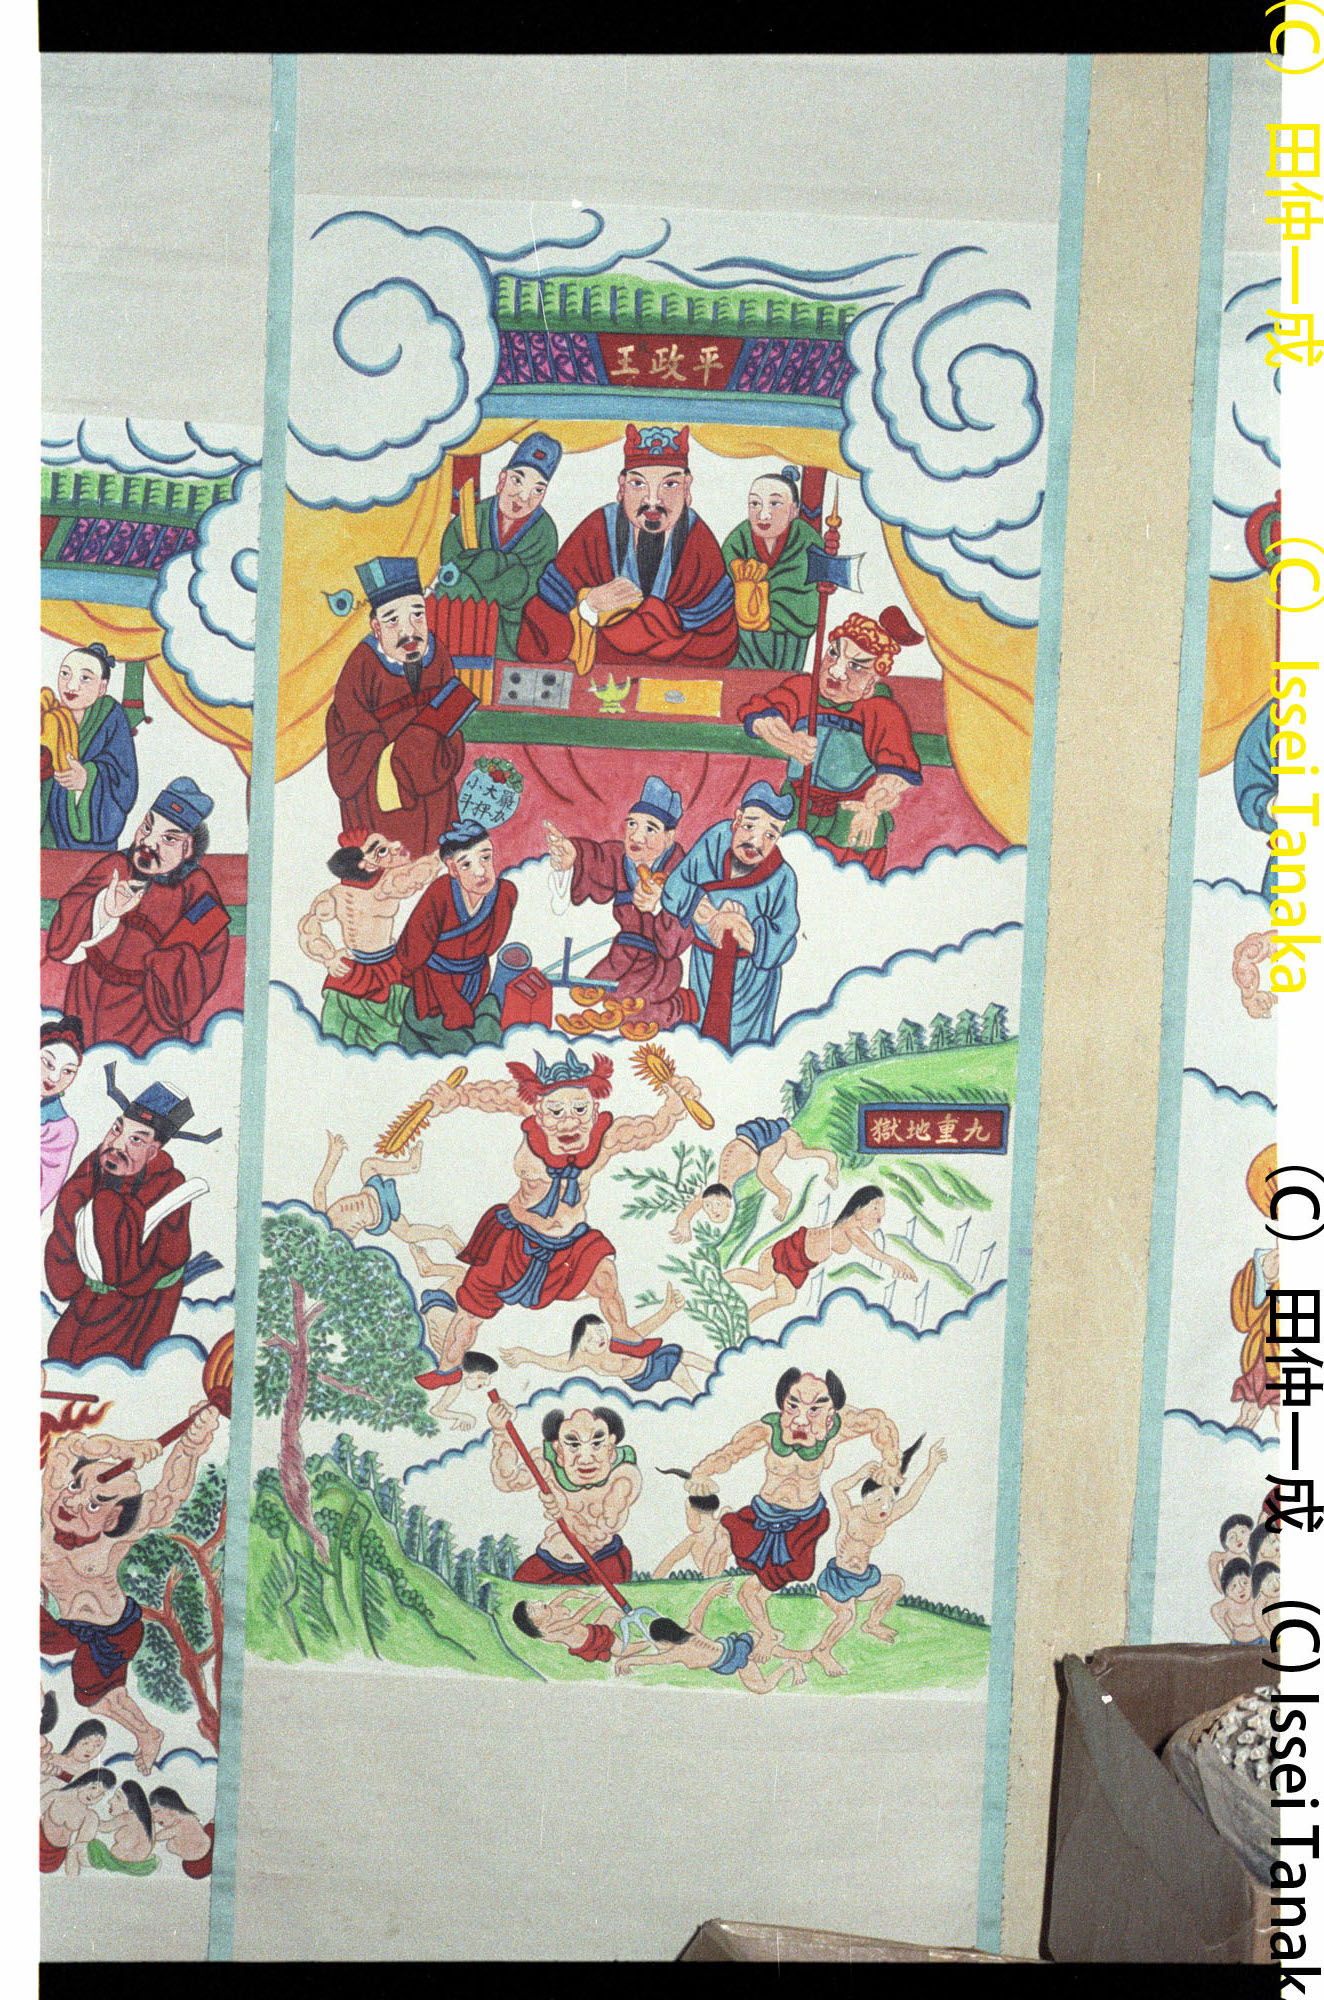 平政王
嚴办
大秤
小斗
九重地獄
(C) 田仲一成 (C) Issei Tanaka
(C) 田仲一成 (C) Issei Tanak